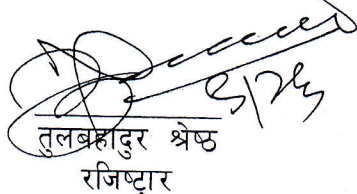 तुलबहादुर श्रेष्ठ
रजिष्ट्रार